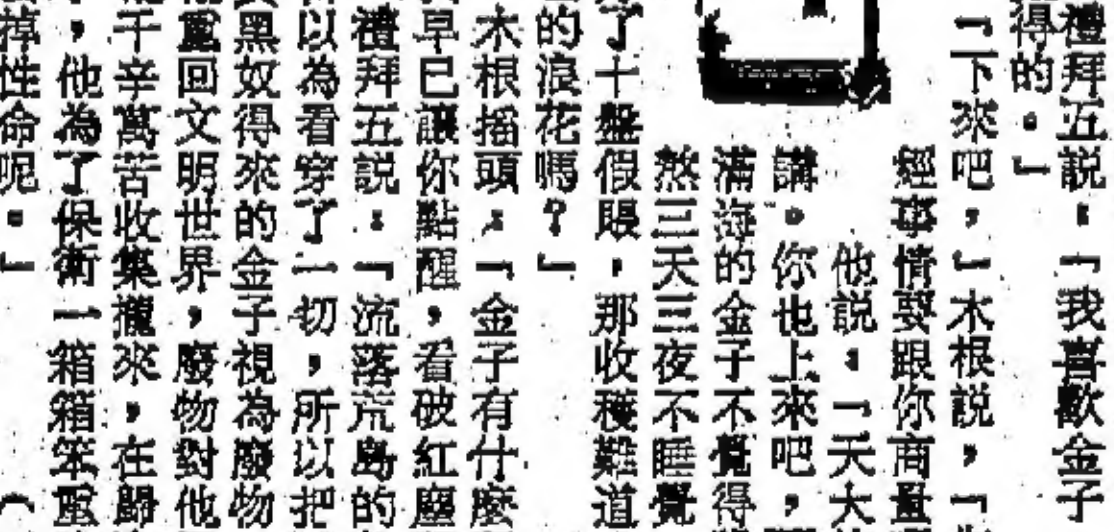 禮拜五説：「我喜歡金子
得的。」
「下來吧，」木根説，「
經事情要跟你商量
他説：「天大
講。你也上來吧，
滿海的金子不覺得
熬三天三夜不睡覺
了十盤假眼，那收穫難道
的浪花嗎？」
木根搖頭：「金子有什麼
早已讓你點醒，看破紅塵
禮拜五説：「流落荒島的
以為看穿了一切，所以把
黑奴得來的金子視為廢物
重回文明世界，廢物對他
千辛萬苦收集攏來，在歸
，他為了保衛一箱箱笨重
掉性命呢。」